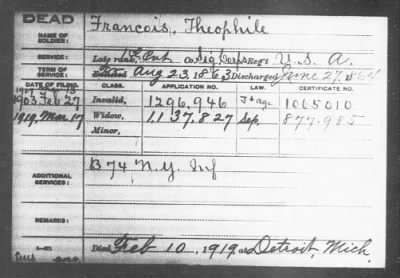 DEAD
NAME OF SOLDIER: Francois, Theophile
SERVICE: Late rank, Pvt Co Sig Corps Reg't U. S. A.
TERM OF SERVICE: Enlisted Aug 23, 1863 Discharged June 27, 1864
DATE OF FILING. CLASS. APPLICATION NO. LAW. CERTIFICATE NO.
1903 Feb 27 Invalid, 1296,946 1065010
1919, Mar 17 Widow, 1137,827 Sep. 877,985
Minor,
ADDITIONAL SERVICES: B 74 N.Y. Inf
REMARKS:
Died Feb 10, 1919, at Detroit, Mich.